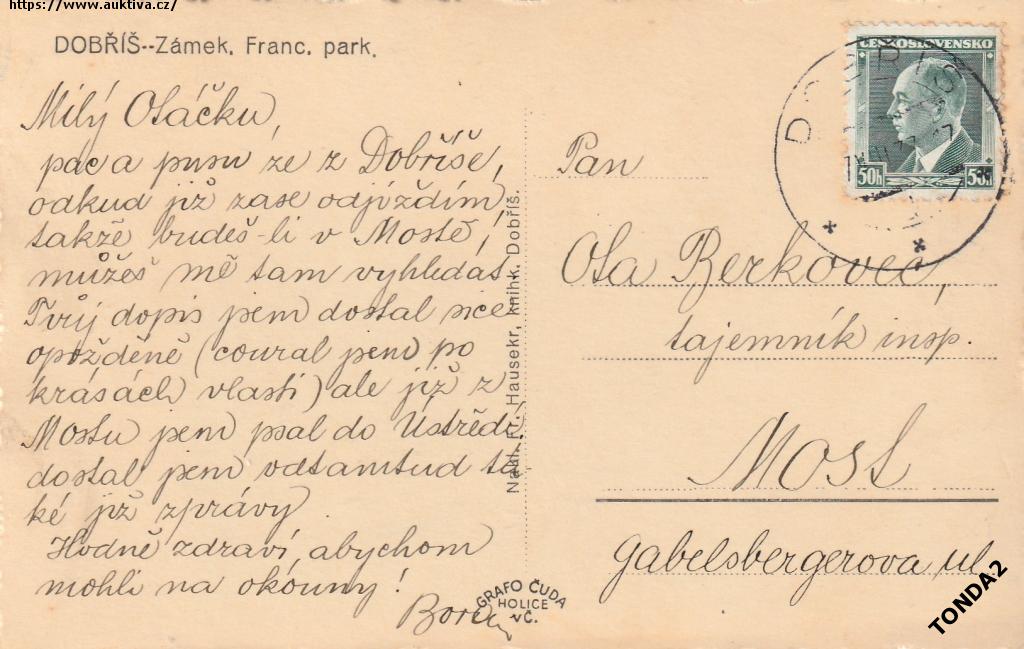 https://www.auktiva.cz/
DOBŘÍŠ--Zámek, Franc. park.
Milý Otáčku,
pac a pusu ze z Dobříše,
odkud již zase odjíždím,
takže budeš-li v Mostě,
můžeš mě tam vyhledat.
Tvůj dopis jsem dostal sice
opožděně (coural jsem po
krásách vlasti) ale již z
Mostu jsem psal do Ústředí,
dostal jsem odtamtud ta
ké již zprávy.
Hodně zdraví, abychom
mohli na okouny!
Nákl. Fr. Hausekr, knihk. Dobříš.
GRAFO ČUDA
HOLICE
VČ.
ČESKOSLOVENSKO
50h 50h
DOBŘÍŠ
Pan
Ota Berkovec,
tajemník insp.
Most
Gabelsbergerova ul.
TONDA2